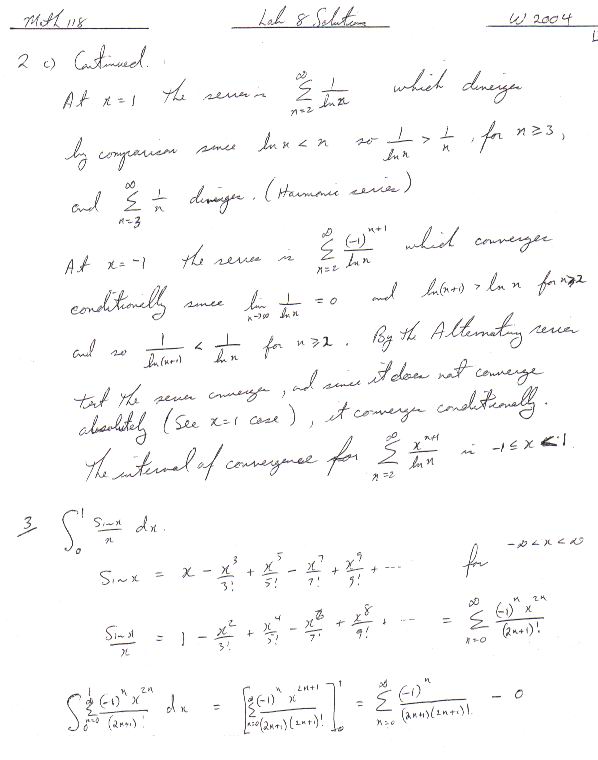 Math 118 Lab 8 Solutions W 2004
2 c) Continued.
At x = 1 the series is ∑_{n=2}^{∞} 1/ln n which diverges
by comparison since ln n < n so 1/ln n > 1/n, for n ≥ 3,
and ∑_{n=3}^{∞} 1/n diverges. (Harmonic series)
At x = -1 the series is ∑_{n=2}^{∞} (-1)^{n+1}/ln n which converges
conditionally since lim_{n→∞} 1/ln n = 0 and ln(n+1) > ln n for n≥2
and so 1/ln(n+1) < 1/ln n for n ≥ 2. By the Alternating series
test the series converges, and since it does not converge
absolutely (See x=1 case), it converges conditionally.
The interval of convergence for ∑_{n=2}^{∞} x^{n+1}/ln n is -1 ≤ x < 1.
3 ∫_0^1 Sin x/x dx.
Sin x = x - x^3/3! + x^5/5! - x^7/7! + x^9/9! + ... for -∞ < x < ∞
Sin x/x = 1 - x^2/3! + x^4/5! - x^6/7! + x^8/9! + ... = ∑_{n=0}^{∞} (-1)^n x^{2n}/(2n+1)!
∫_0^1 ∑_{n=0}^{∞} (-1)^n x^{2n}/(2n+1)! dx = [∑_{n=0}^{∞} (-1)^n x^{2n+1}/(2n+1)(2n+1)!]_0^1 = ∑_{n=0}^{∞} (-1)^n/(2n+1)(2n+1)! - 0